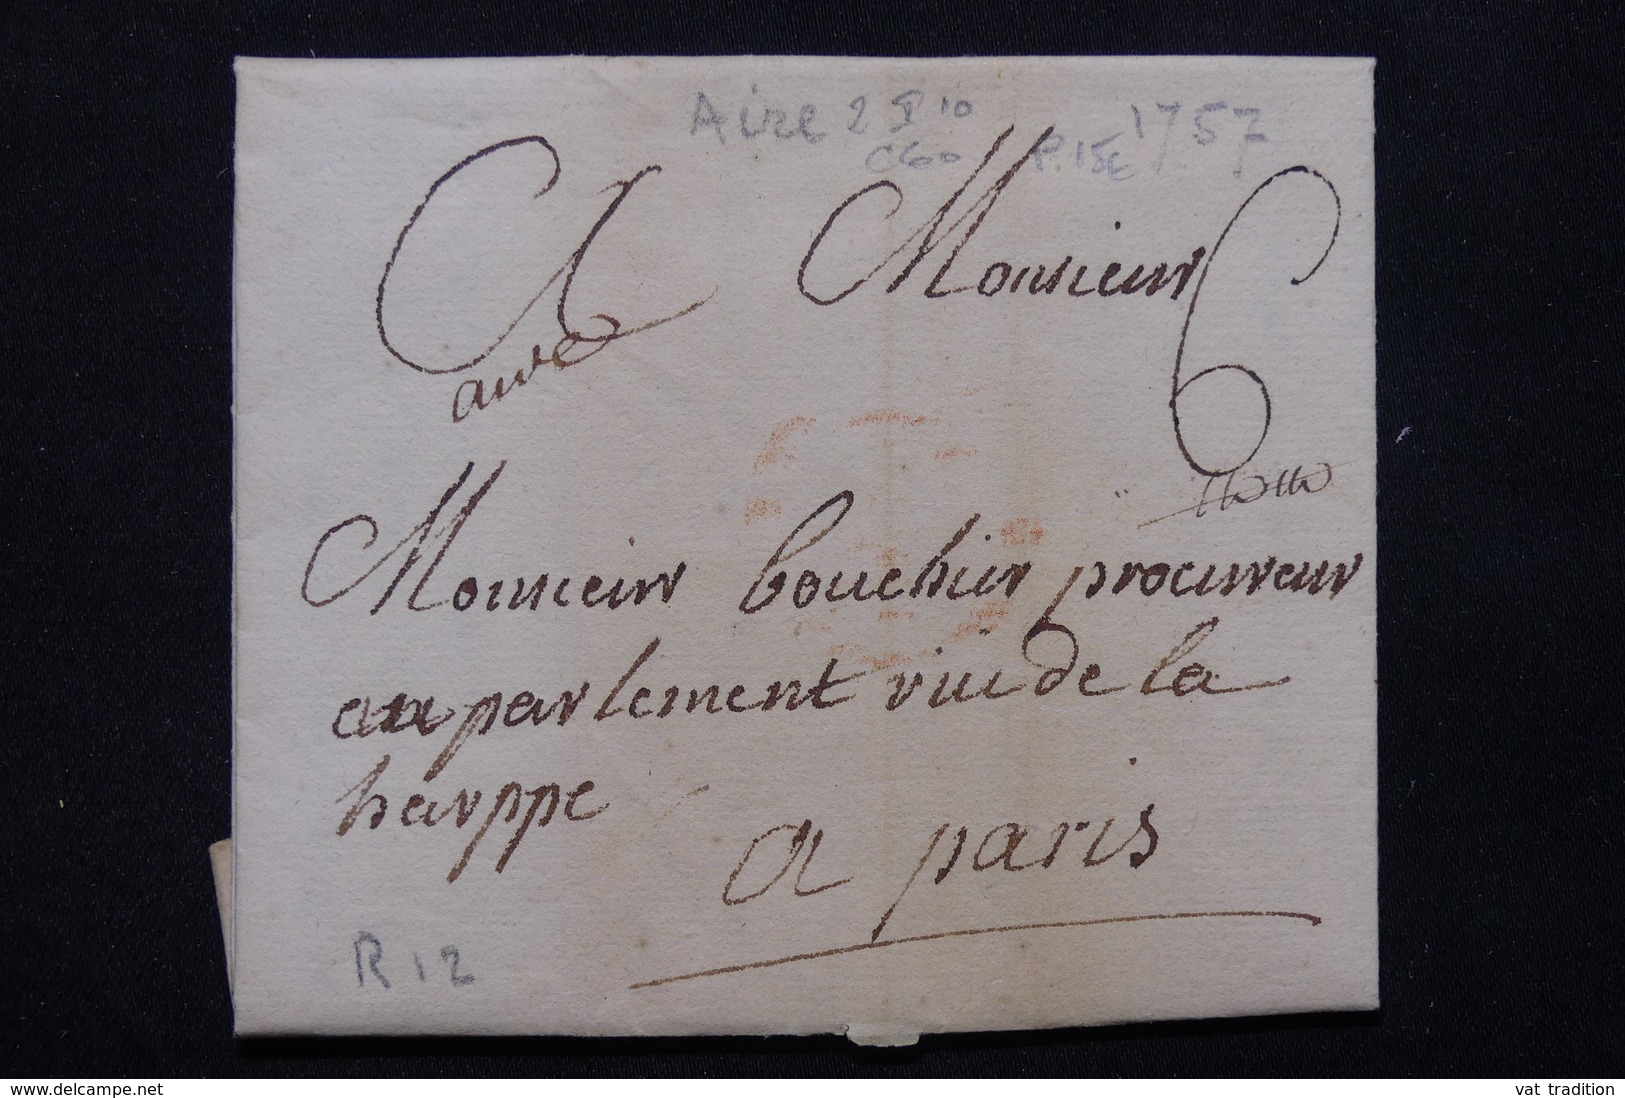 Aire 2 10 1757
C60 P. 15E
A Monsieur 6
aire
Monsieur bouchér procureur
au parlement rüe de la
harppe
a paris
R 12
www.delcampe.net vat_tradition